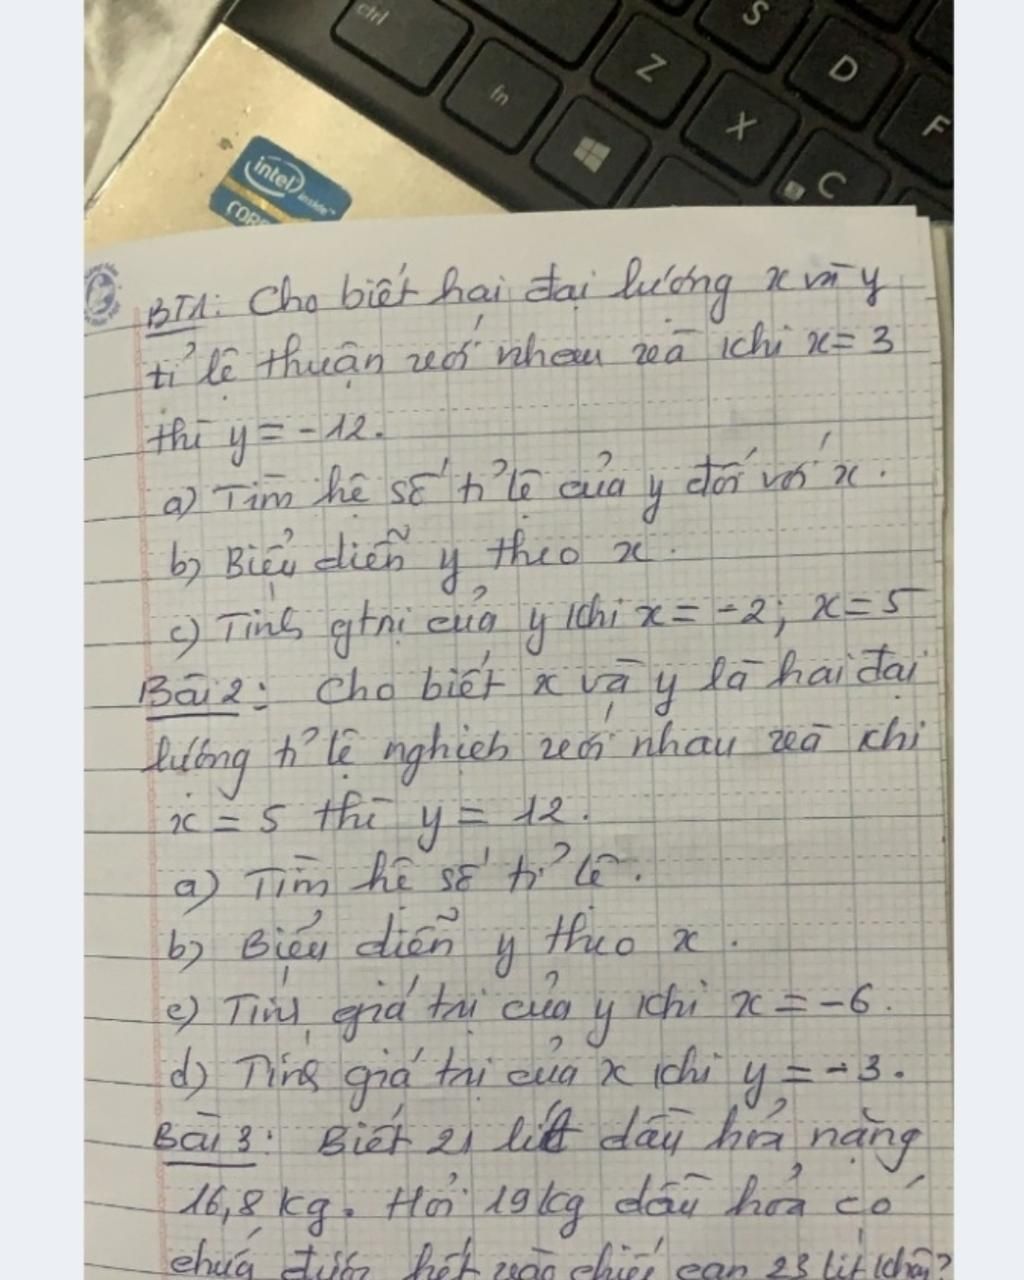 ctrl
fn
Z
S
X
D
C
F
intel
inside™
CORE
BT1: Cho biết hai đại lượng x và y
tỉ lệ thuận với nhau và khi x = 3
thì y = -12.
a) Tìm hệ số tỉ lệ của y đối với x.
b) Biểu diễn y theo x.
c) Tính gtrị của y khi x = -2; x = 5
Bài 2: Cho biết x và y là hai đại
lượng tỉ lệ nghịch với nhau và khi
x = 5 thì y = 12.
a) Tìm hệ số tỉ lệ.
b) Biểu diễn y theo x.
c) Tính giá trị của y khi x = -6.
d) Tính giá trị của x khi y = -3.
Bài 3: Biết 21 lít dầu hỏa nặng
16,8 kg. Hỏi 19 kg dầu hỏa có
chứa được hết vào chiếc can 23 lít không?